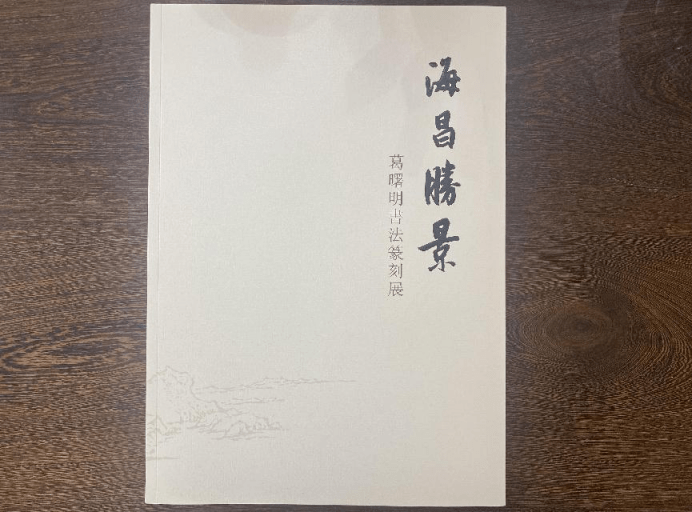 海昌勝景
葛曙明書法篆刻展